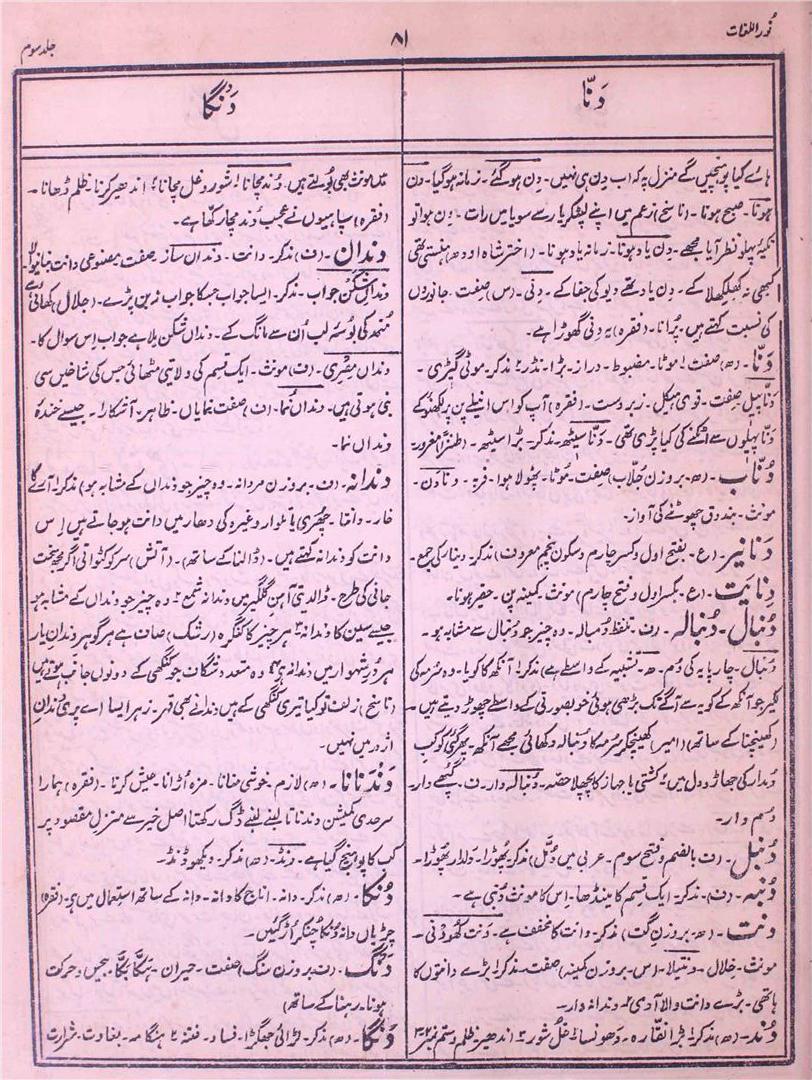 نُور اللغات
۸۱
جلد سوم
دَنّا
دَنگا
ہائے کیا پوہنچیں گے منزل پہ کہ اب دن ہی نہیں۔ دِن ہو گئے۔ زمانہ ہو گیا۔ دن
ہونا۔ صبح ہونا۔ (ناسخ) زعم میں اپنے لپٹکر یار سے سویا میں رات۔ دن ہوا تو
تکیۂ پہلو نظر آیا مجھے۔ دِن یاد ہونا۔ زمانہ یاد ہونا۔ (اختر شاہ اودھ) ہنستی تھی
کبھی نہ کھلکھلا کے۔ دن یاد تھے دیو کی جفا کے۔ دِنی۔ (س) صفت۔ جانوروں
کی نسبت کہتے ہیں۔ پُرانا۔ (فقرہ) یہ دِنی گھوڑا ہے۔
دَنّا۔ (ھ) صفت ۱ موٹا۔ مضبوط۔ دراز۔ بڑا۔ نڈر ۲ مذکر۔ موٹی پگڑی۔
دنّا بیل۔ صفت۔ قوی ہیکل۔ زبردست۔ (فقرہ) آپ کو اس انیلے پن پر لکھنؤ کے
دنّا بیلوں سے اٹکنے کی کیا پڑی تھی۔ دَنّا سیٹھ۔ مذکر۔ بڑا سیٹھ۔ (طنزاً) مغرور۔
دُنّاب۔ (ھ۔ بروزن جُلّاب) صفت۔ موٹا۔ پھولا ہوا۔ فربہ۔ دَناوَن۔
مونث۔ بندوق چھوٹنے کی آواز۔
دَنانیر۔ (ع۔ بفتح اول و کسر چہارم و سکون پنجم معروف) مذکر۔ دینار کی جمع۔
دِنایَت۔ (ع۔ بکسر اول و فتح چہارم) مونث۔ کمینہ پن۔ حقیر ہونا۔
دُنبال۔ دُنبالہ۔ (ف۔ تلفظ دُمبالہ۔ وہ چیز جو دُنبال سے مشابہ ہو۔
دُنبال۔ چار پایہ کی دُم۔ ھ۔ تشبیہ کے واسطے ہے) مذکر ۱ آنکھ کا کویا۔ وہ سُرمہ کی
لکیر جو آنکھ کے کویہ سے آگے تک بڑھی ہوئی خوبصورتی کے واسطے چھوڑ دیتے ہیں۔
(کھینچنا کے ساتھ) (امیر) کھینچکر سُرمہ کا دُنبالہ دکھائی مجھے آنکھ۔ پھر گئی کوکب
دُمدار کی جھاڑو دل میں ۲ کشتی یا جہاز کا پچھلا حصّہ۔ دُنبالہ دار۔ ف۔ گپھے دار۔
دُم دار۔
دُنبَل۔ (ف بالضم و فتح سوم۔ عربی میں دُمّل) مذکر۔ پھوڑا۔ دَلدار پھوڑا۔
دُنبہ۔ (ف) مذکر۔ ایک قسم کا مینڈھا۔ اس کا مونث دُنبی ہے۔
دَنت۔ (ھ۔ بروزن گت) مذکر۔ دانت کا مخفف ہے۔ دَنت کھودنی۔
مونث۔ خلال۔ دنتیلا۔ (س۔ بروزن کمینہ) صفت۔ مذکر ۱ بڑے دانتوں کا
ہاتھی۔ بڑے دانت والا آدمی ۲ دندانہ دار۔
دُند۔ (ھ) مذکر ۱ بڑا نقارہ۔ دھونسا ۲ غل شور ۳ اندھیر۔ ظلم و ستم
میں مونث بھی بولتے ہیں۔ دُند مچانا ۱ شور و غل مچانا ۲ اندھیر کرنا۔ ظلم ڈھانا۔
(فقرہ) سپاہیوں نے عجب دُند مچا رکھا ہے۔
دَندان۔ (ف) مذکر۔ دانت۔ دنداں ساز۔ صفت۔ مصنوعی دانت بنانیوالا۔
دنداں شکن جواب۔ مذکر۔ ایسا جواب جسکا جواب نہ بن پڑے۔ (جلال) کھائی ہے
مُنھ کی بوسۂ لب اُن سے مانگ کے۔ دنداں شکن ملا ہے جواب اِس سوال کا۔
دنداں مِصری۔ (ف) مونث۔ ایک قسم کی ولایتی مٹھائی جس کی شاخیں سی
بنی ہوتی ہیں۔ دنداں نُما۔ (ف) صفت نمایاں۔ ظاہر۔ آشکارا۔ جیسے خندۂ
دنداں نما۔
دندانہ۔ (ف۔ بروزن مردانہ۔ وہ چیز جو دنداں کے مشابہ ہو) مذکر ۱ آرے کا
خار۔ دانتا۔ چھری یا تلوار وغیرہ کی دھار میں دانت ہو جاتے ہیں اِس
دانت کو دندانہ کہتے ہیں۔ (ڈالنا کے ساتھ)۔ (آتش) سر کو کٹواتی اگر مجھ سخت
جانی کی طرح۔ ڈالدیتی آہنِ گلگیر میں دندانہ شمع ۲ وہ چیز جو دنداں کے مشابہ ہو
جیسے سین کا دندانہ ۳ ہر چیز کا کنگرہ (رشک) صاف ہے ہر گوہرِ دندانِ یار
ہر دُرِ شہوار میں دندانہ ہے ۴ وہ متعدد شگاف جو کنگھی کے دونوں جانب ہوتے ہیں
(ناسخ) زلف تو کیا تیری کنگھی کے ہیں دندانے بھی قہر۔ زہر ایسا اے پری دندانِ
اژدر میں نہیں۔
دَندَنانا۔ (ھ) لازم۔ خوشی منانا۔ مزہ اُڑانا۔ عیش کرنا۔ (فقرہ) ہمارا
سرحدی کمیشن دندناتا لمبے لمبے ڈگ رکھتا اصل خیر سے منزل مقصود پر
کب کا پوہنچ گیا ہے۔ دَنڈ۔ (ھ) مذکر۔ دیکھو ڈنڈ۔
دُنکا۔ (ھ) مذکر۔ دانہ۔ اناج کا دانہ۔ دانہ کے ساتھ استعمال میں ہی۔ (فقرہ)
چڑیاں دانہ دُنکا چُنکر اُڑ گئیں۔
دَنگ۔ (ف۔ بروزن سنگ) صفت۔ حیران۔ ہکّا بکّا۔ بیحس و حرکت
ہونا۔ رہنا کے ساتھ)
دَنگا۔ (ھ) مذکر ۱ لڑائی جھگڑا۔ فساد۔ فتنہ ۲ ہنگامہ۔ بغاوت۔ شرارت